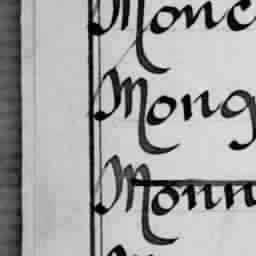 Monc
Mong
Monn